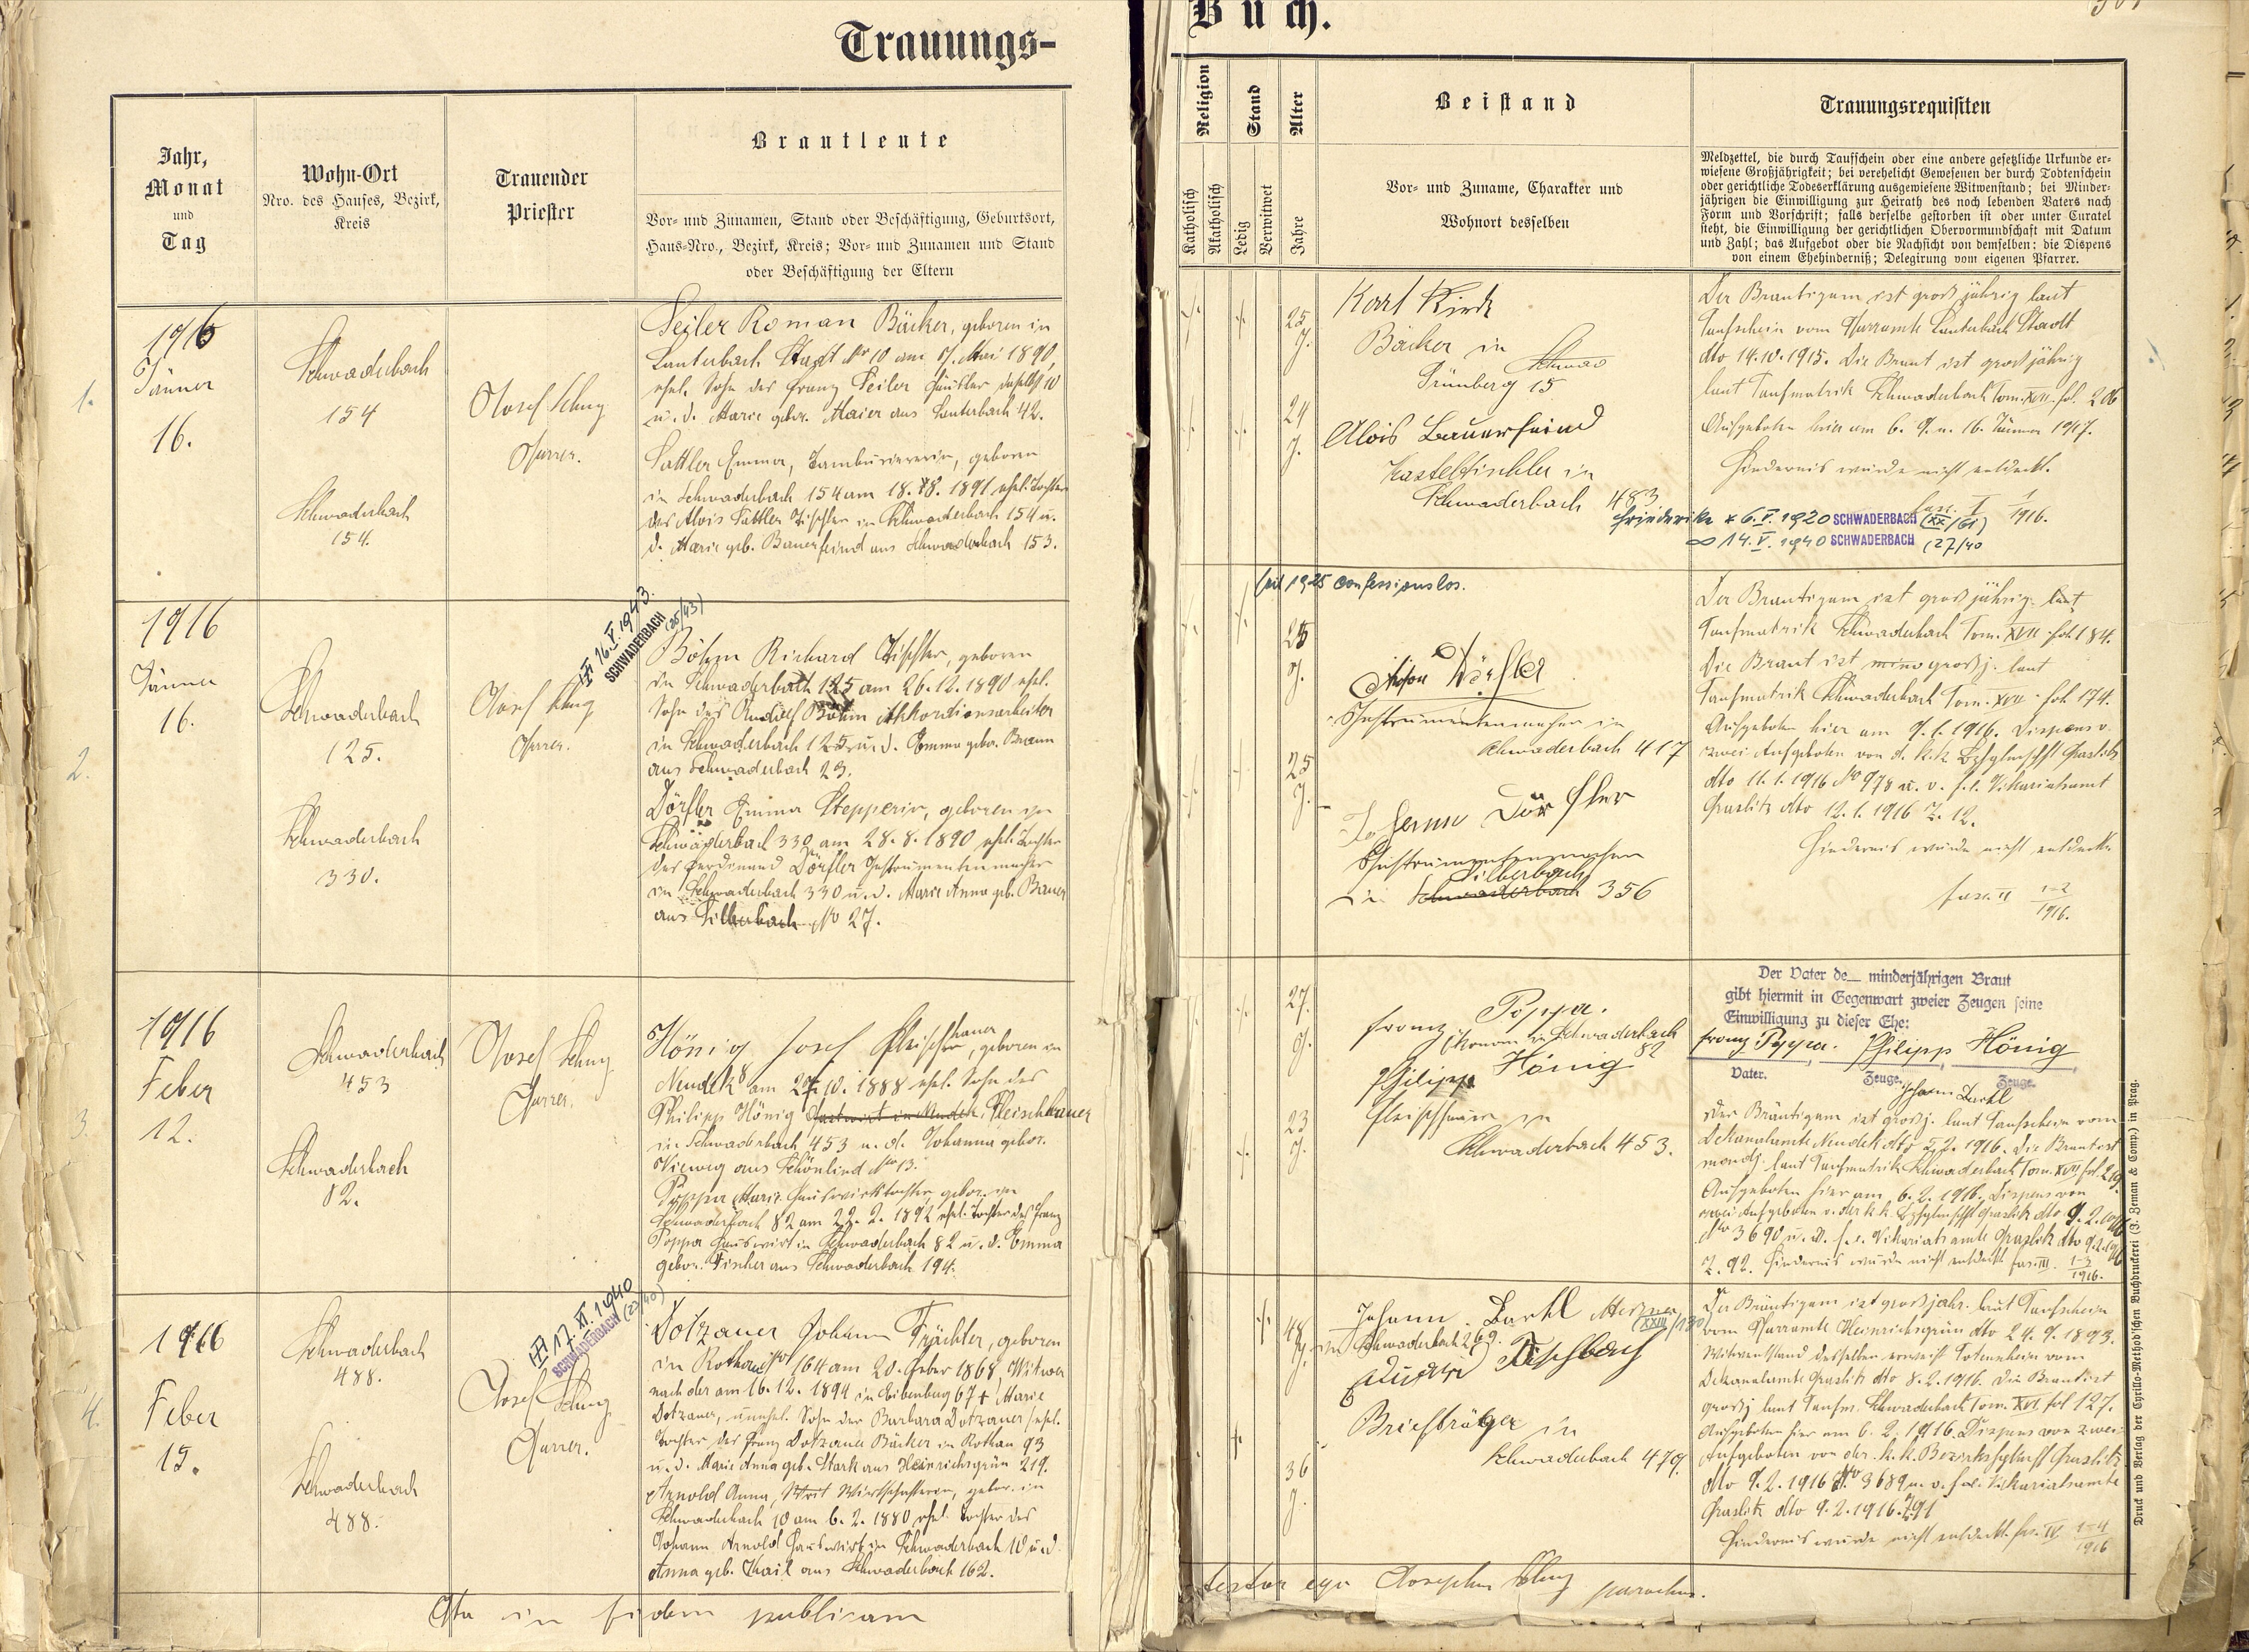 Trauungs-
Buch.
Jahr,
Monat
und
Tag
Wohn-Ort
Nro. des Hauses, Bezirk,
Kreis
Trauender
Priester
Brautleute
Vor- und Zunamen, Stand oder Beschäftigung, Geburtsort,
Haus-Nro., Bezirk, Kreis; Vor- und Zunamen und Stand
oder Beschäftigung der Eltern
Religion
Katholisch
Akatholisch
Stand
Ledig
Verwitwet
Alter
Jahre
Beistand
Vor- und Zuname, Charakter und
Wohnort desselben
Trauungsrequisiten
Meldzettel, die durch Taufschein oder eine andere gesetzliche Urkunde er-
wiesene Großjährigkeit; bei verehelicht Gewesenen der durch Todtenschein
oder gerichtliche Todeserklärung ausgewiesene Witwenstand; bei Minder-
jährigen die Einwilligung zur Heirath des noch lebenden Vaters nach
Form und Vorschrift; falls derselbe gestorben ist oder unter Curatel
steht, die Einwilligung der gerichtlichen Obervormundschaft mit Datum
und Zahl; das Aufgebot oder die Nachsicht von demselben: die Dispens
von einem Ehehinderniß; Delegirung vom eigenen Pfarrer.
1.
1916
Jänner
16.
Schwaderbach
154
Schwaderbach
154.
Josef
Pfarrer.
Seiler Roman Bäcker, geboren in
Lauterbach Stadt No 10 am Mai 1890,
ehel. Sohn des Franz Seiler Häusler daselbst 10
u. d. Marie gebor. Maier aus Lauterbach 42.
Sattler Emma, Tambouriererin, geboren
in Schwaderbach 154 am 18. 8. 1891 ehel. Tochter
des Alois Sattler Tischler in Schwaderbach 154 u.
d. Marie geb. Bauerfeind aus Schwaderbach 153.
25
J.
24
J.
Karl
Bäcker in
Grünberg 15
Alois Bauerfeind
in
Schwaderbach 483
Der Bräutigam ist großjährig laut
Taufschein vom Pfarramte Lauterbach Stadt
dto 14.10.1915. Die Braut ist großjährig
laut Taufmatrik Schwaderbach Tom. XVII fol. 206
Aufgeboten hier am 6. 9. u. 16. Jänner 1917.
Hindernis wurde nicht entdeckt.
fasc. I 1/1916.
Friederike * 6.V.1920 SCHWADERBACH (XX/61)
∞ 14.V.1940 SCHWADERBACH (27/40
2.
1916
Jänner
16.
Schwaderbach
125.
Schwaderbach
330.
Josef
Pfarrer.
16.V.1943.
SCHWADERBACH (25/43)
Böhm Richard Tischler, geboren
in Schwaderbach 125 am 26.12.1890 ehel.
Sohn des Rudolf Böhm Akkordionsarbeiter
in Schwaderbach 125 u. d. Emma gebor. Braun
aus Schwaderbach 23.
Dörfler Emma Stepperin, geboren in
Schwaderbach 330 am 28.8.1890 ehel. Tochter
des Ferdinand Dörfler Instrumentenmacher
in Schwaderbach 330 u. d. Marie Anna geb. Bauer
aus Silberbach No 27.
seit 1925 confessionslos.
25
J.
25
J.
Anton Dörfler
Instrumentenmacher in
Schwaderbach 417
Johann Dörfler
Instrumentenmacher
Silberbach
in Schwaderbach 356
Der Bräutigam ist großjährig laut
Taufmatrik Schwaderbach Tom. XVII fol. 184.
Die Braut ist großj. laut
Taufmatrik Schwaderbach Tom. XVII fol 174.
Aufgeboten hier am 9.1.1916. Dispens v.
zwei Aufgeboten von d. k.k. Graslitz
dto 11.1.1916 No 978 u. v. f.e. Vikariatsamt
Graslitz dto 12.1.1916 Z. 12.
Hindernis wurde nicht entdeckt.
fasc. II 1-2/1916.
3.
1916
Feber
12.
Schwaderbach
453
Schwaderbach
82.
Josef
Pfarrer.
Hönig Josef Fleischhauer, geboren in
Neudek am 10.1888 ehel. Sohn des
Philipp Hönig Gastwirt in Neudek, Fleischhauer
in Schwaderbach 453 u. d. Johanna gebor.
Vieweg aus Schönlind No 13.
Poppa Marie Hauswirtstochter, gebor. in
Schwaderbach 82 am 22.2.1892 ehel. Tochter des Franz
Poppa Hauswirt in Schwaderbach 82 u. d. Emma
gebor. Fischer aus Schwaderbach 194.
27.
J.
23
J.
Franz Poppa.
Ökonom in Schwaderbach
82
Philipp Hönig
Fleischhauer in
Schwaderbach 453.
Der Vater de_ minderjährigen Braut
gibt hiermit in Gegenwart zweier Zeugen seine
Einwilligung zu dieser Ehe:
Franz Poppa. Philipp Hönig
Vater. Zeuge. Zeuge.
Johann Bartl
Der Bräutigam ist großj. laut Taufschein vom
Dekanalamte Neudek dto 5.2.1916. Die Braut ist
mindj. laut Taufmatrik Schwaderbach Tom. XVII fol. 219.
Aufgeboten hier am 6.2.1916. Dispens von
zwei Aufgeboten v. der k.k. Graslitz dto 9.2.1916
No 3690 u. v. f.e. Vikariatsamte Graslitz dto 9.2.1916
Z. 92. Hindernis wurde nicht entdeckt fas. III. 1-3/1916.
4.
1916
Feber
15.
Schwaderbach
488.
Schwaderbach
488.
Josef
Pfarrer.
17.XI.1940
SCHWADERBACH (23/40)
Dotzauer Johann Frächter, geboren
in Rothau No 164 am 20. Feber 1868, Witwer
nach der am 16.12.1894 in Eibenberg 67 + Marie
Dotzauer, unehel. Sohn der Barbara Dotzauer, ehel.
Tochter des Franz Dotzauer Bäcker in Rothau 93
u. d. Marie Anna geb. Stark aus Heinrichsgrün 219.
Arnold Anna, Wirtschafterin, gebor. in
Schwaderbach 10 am 6.2.1880 ehel. Tochter des
Johann Arnold Hauswirt in Schwaderbach 10 u. d.
Anna geb. Thail aus Schwaderbach 162.
48
J.
36
J.
Johann Bartl Mesner
(XXIII/130)
in Schwaderbach 269.
Fischbach
Briefträger in
Schwaderbach 479.
Der Bräutigam ist großjähr. laut Taufschein
vom Pfarramte Heinrichsgrün dto 24.9.1893.
Witwenstand desselben erweist Totenschein vom
Dekanalamte Graslitz dto 8.2.1916. Die Braut ist
großj. laut Taufm. Schwaderbach Tom. XVI fol 127.
Aufgeboten hier am 6.2.1916. Dispens von zwei
Aufgeboten von der k.k. Graslitz
dto 9.2.1916 No 3689 u. v. f.e. Vikariatsamte
Graslitz dto 9.2.1916. Z 91
Hindernis wurde nicht entdeckt. fas. IV 1-4/1916
Ita in fidem publicam
testor ego Josephus parochus.
Druck und Verlag der Cyrillo-Method'schen Buchdruckerei (J. Zeman & Comp.) in Prag.